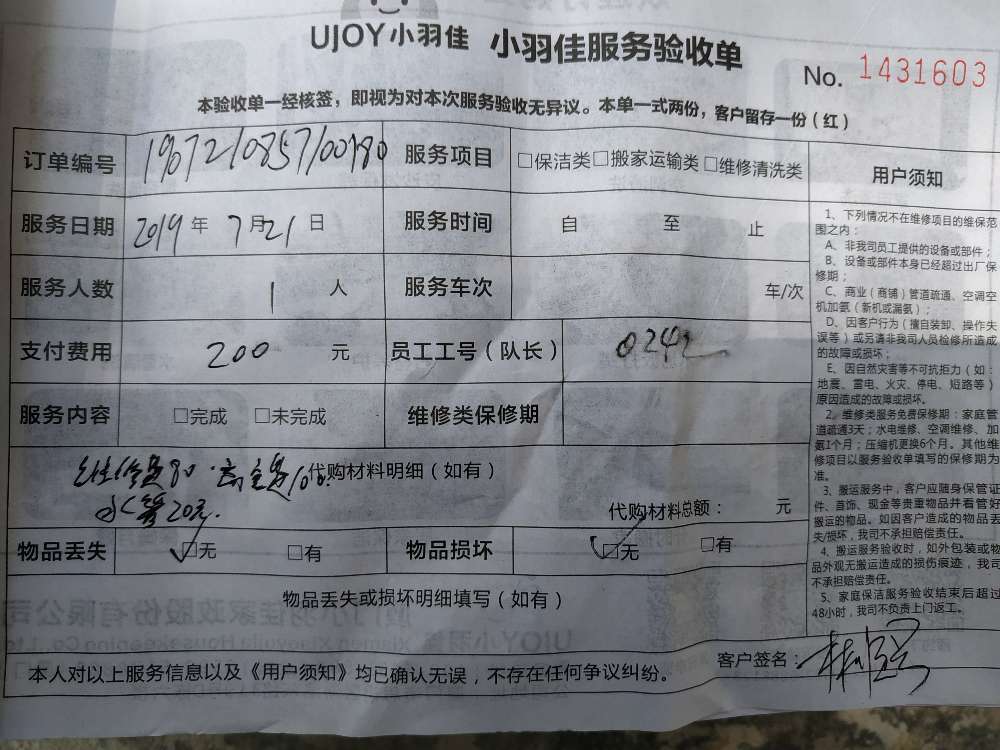 UJOY小羽佳 小羽佳服务验收单
No. 1431603
本验收单一经核签，即视为对本次服务验收无异议。本单一式两份，客户留存一份（红）
订单编号 服务项目 □保洁类□搬家运输类□维修清洗类
服务日期 2019年 7月21日 服务时间 自 至 止
服务人数 1 人 服务车次 车/次
支付费用 200 元 员工工号（队长） 0242
服务内容 □完成 □未完成 维修类保修期
代购材料明细（如有）
水管20元.
代购材料总额： 元
物品丢失 □无 □有 物品损坏 □无 □有
物品丢失或损坏明细填写（如有）
本人对以上服务信息以及《用户须知》均已确认无误，不存在任何争议纠纷。
客户签名：
用户须知
1、下列情况不在维修项目的维保范
围之内：
A、非我司员工提供的设备或部件；
B、设备或部件本身已经超过出厂保
修期；
C、商业（商铺）管道疏通、空调空
机加氨（新机或漏氨）；
D、因客户行为（擅自装卸、操作失
误等）或另请非我司人员检修所造成
的故障或损坏；
E、因自然灾害等不可抗拒力（如：
地震、雷电、火灾、停电、短路等）
原因造成的故障或损坏。
2、维修类服务免费保修期：家庭管
道疏通3天；水电维修、空调维修、加
氨1个月；压缩机更换6个月。其他维
修项目以服务验收单填写的保修期为
准。
3、搬运服务中，客户应随身保管证
件、首饰、现金等贵重物品并看管好
搬运的物品。如因客户造成的物品丢
失/损坏，我司不承担赔偿责任。
4、搬运服务验收时，如外包装或物
品外观无搬运造成的损伤痕迹，我司
不承担赔偿责任。
5、家庭保洁服务验收结束后超过
48小时，我司不负责上门返工。